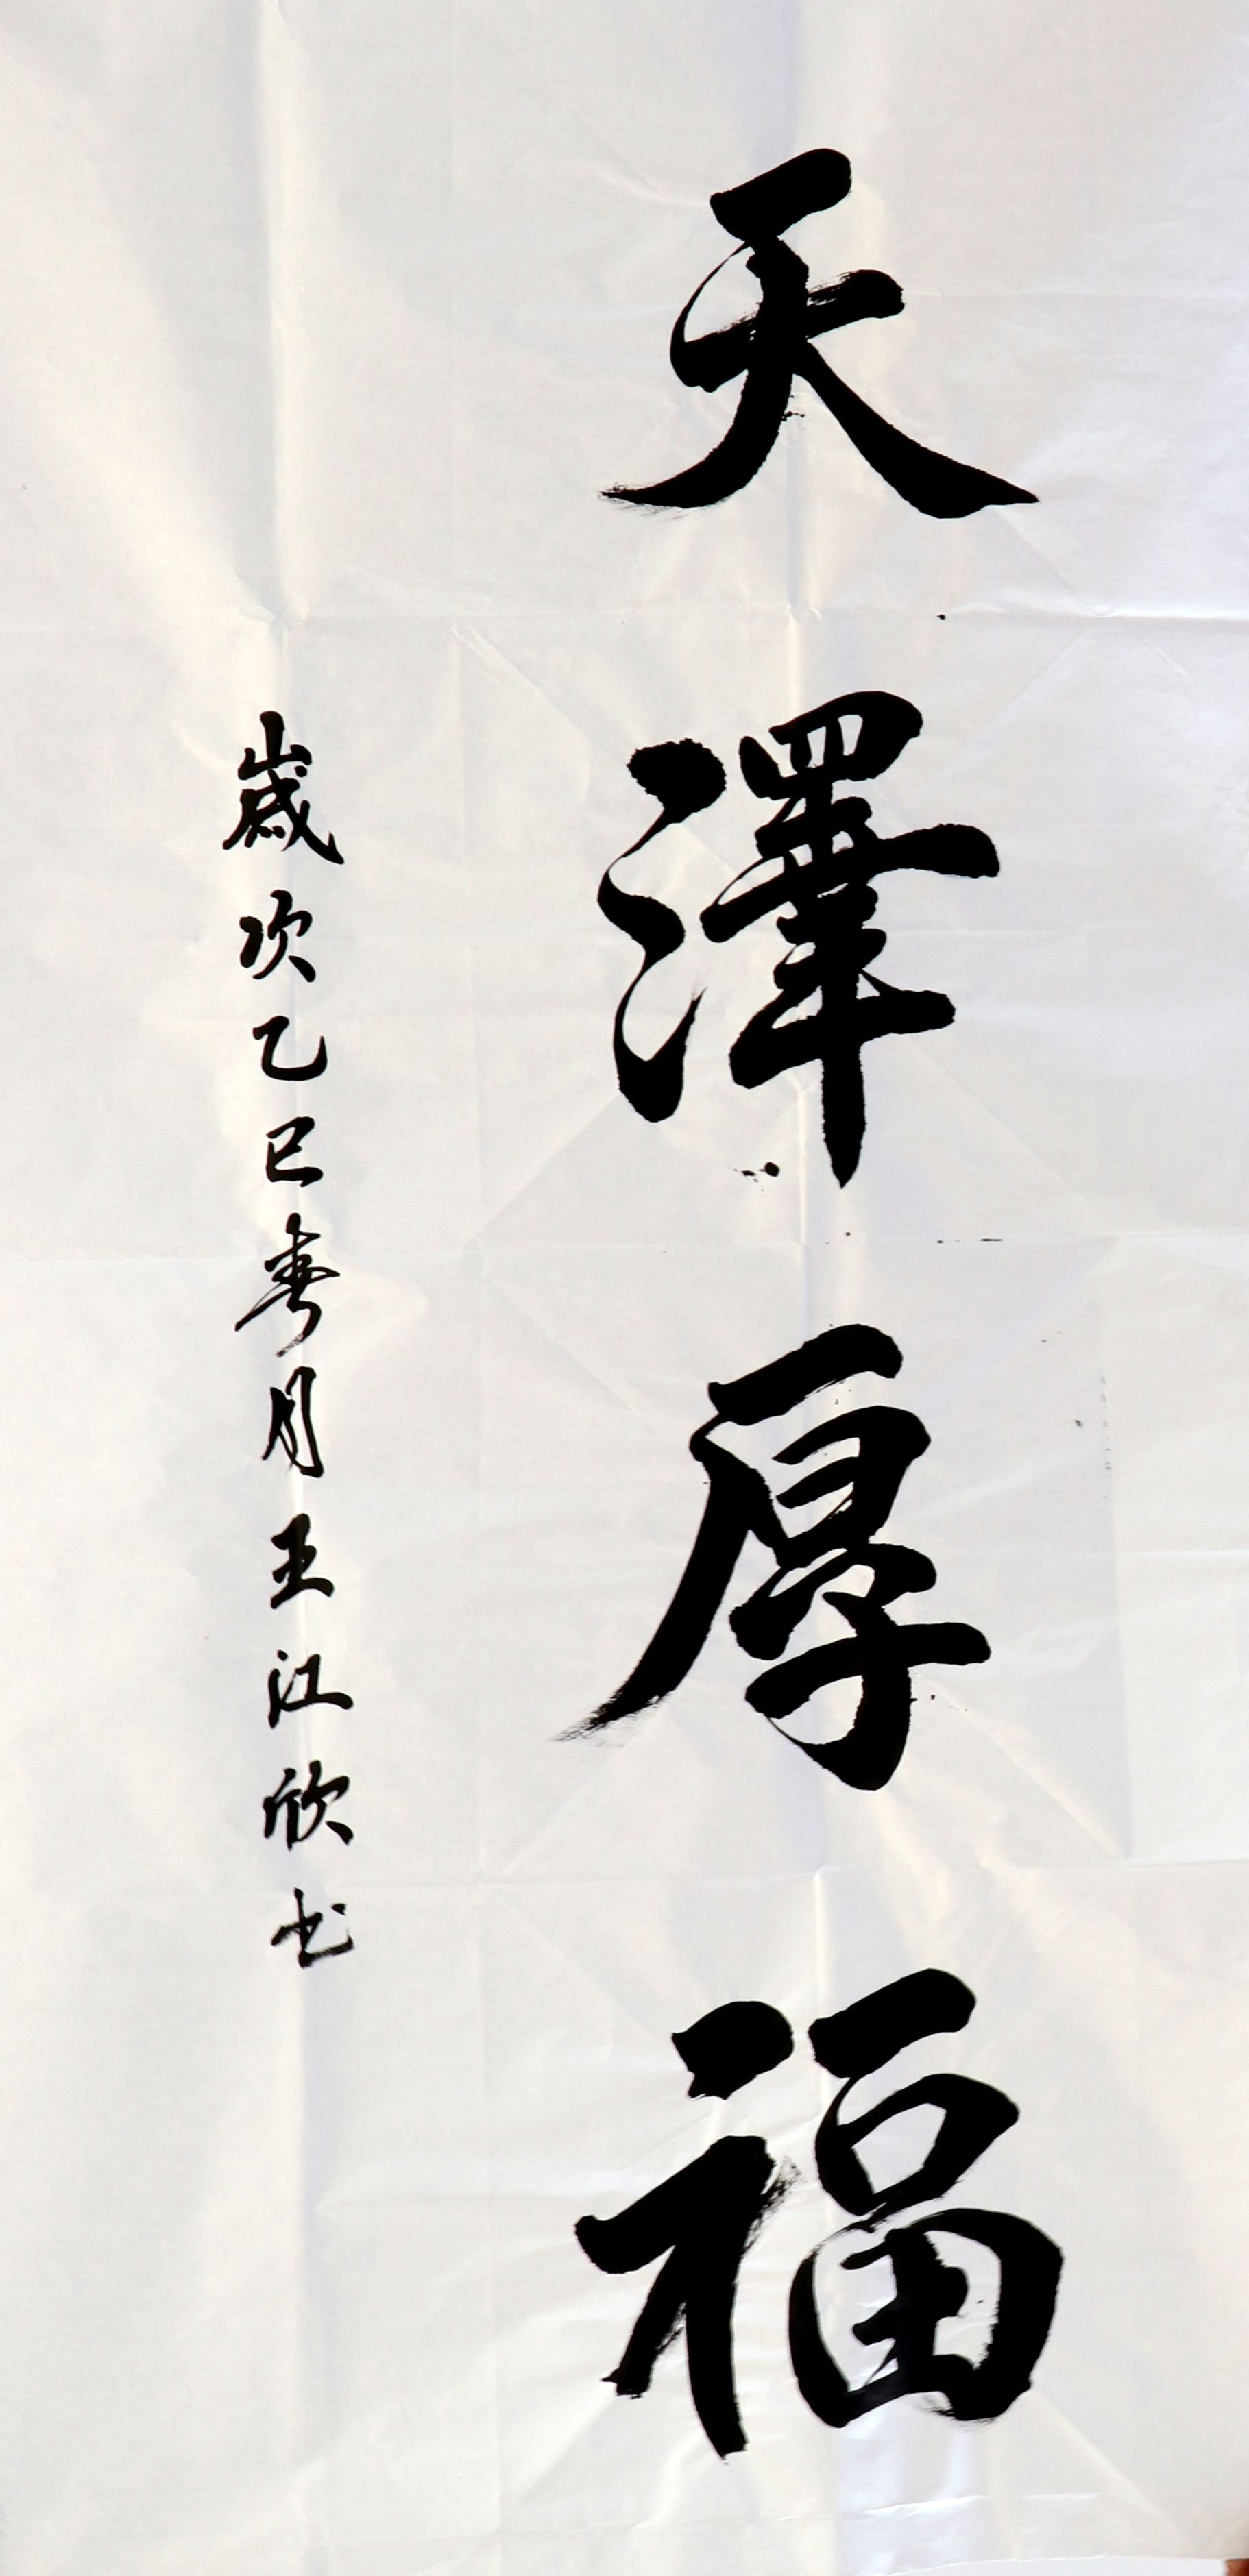 天澤厚福
歲次乙巳春月王江欣书